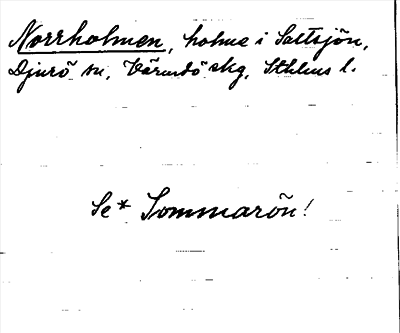 Norrholmen, holme i Saltsjön,
Djurö sn, Värmdö skg, Sthlms l.
Se* Sommarön!